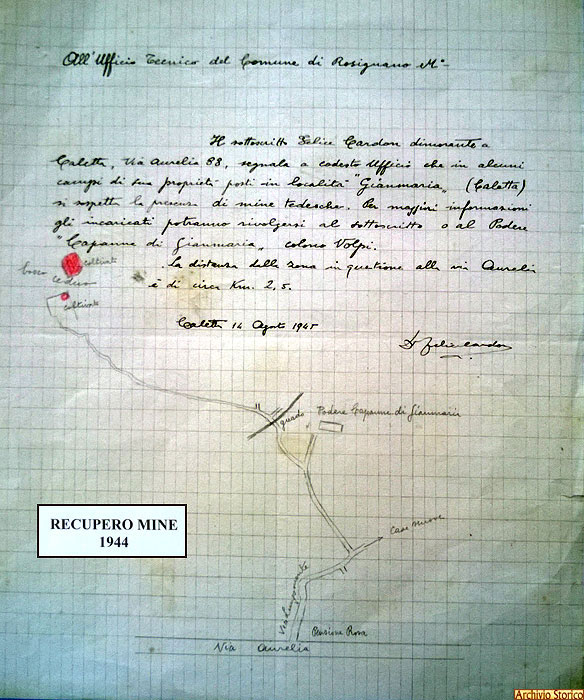 All'Ufficio Tecnico del Comune di Rosignano Mº-
Il sottoscritto Felice Cardon dimorante a
Caletta, Via Aurelia 88, segnala a codesto Ufficio che in alcuni
campi di sua proprietà posti in località "Gianmaria" (Caletta)
si sospetta la presenza di mine tedesche. Per maggiori informazioni
gli incaricati potranno rivolgersi al sottoscritto o al Podere
"Capanne di Gianmaria" colono Volpi.
La distanza della zona in questione alla via Aurelia
è di circa Km. 2,5.
Caletta 14 Agosto 1945
Dr Felice Cardon
coltivato
bosco ceduo
coltivato
guado
Podere Capanne di Gianmaria
RECUPERO MINE
1944
Case nuove
Pensione Rosa
Via Aurelia
Archivio Storico